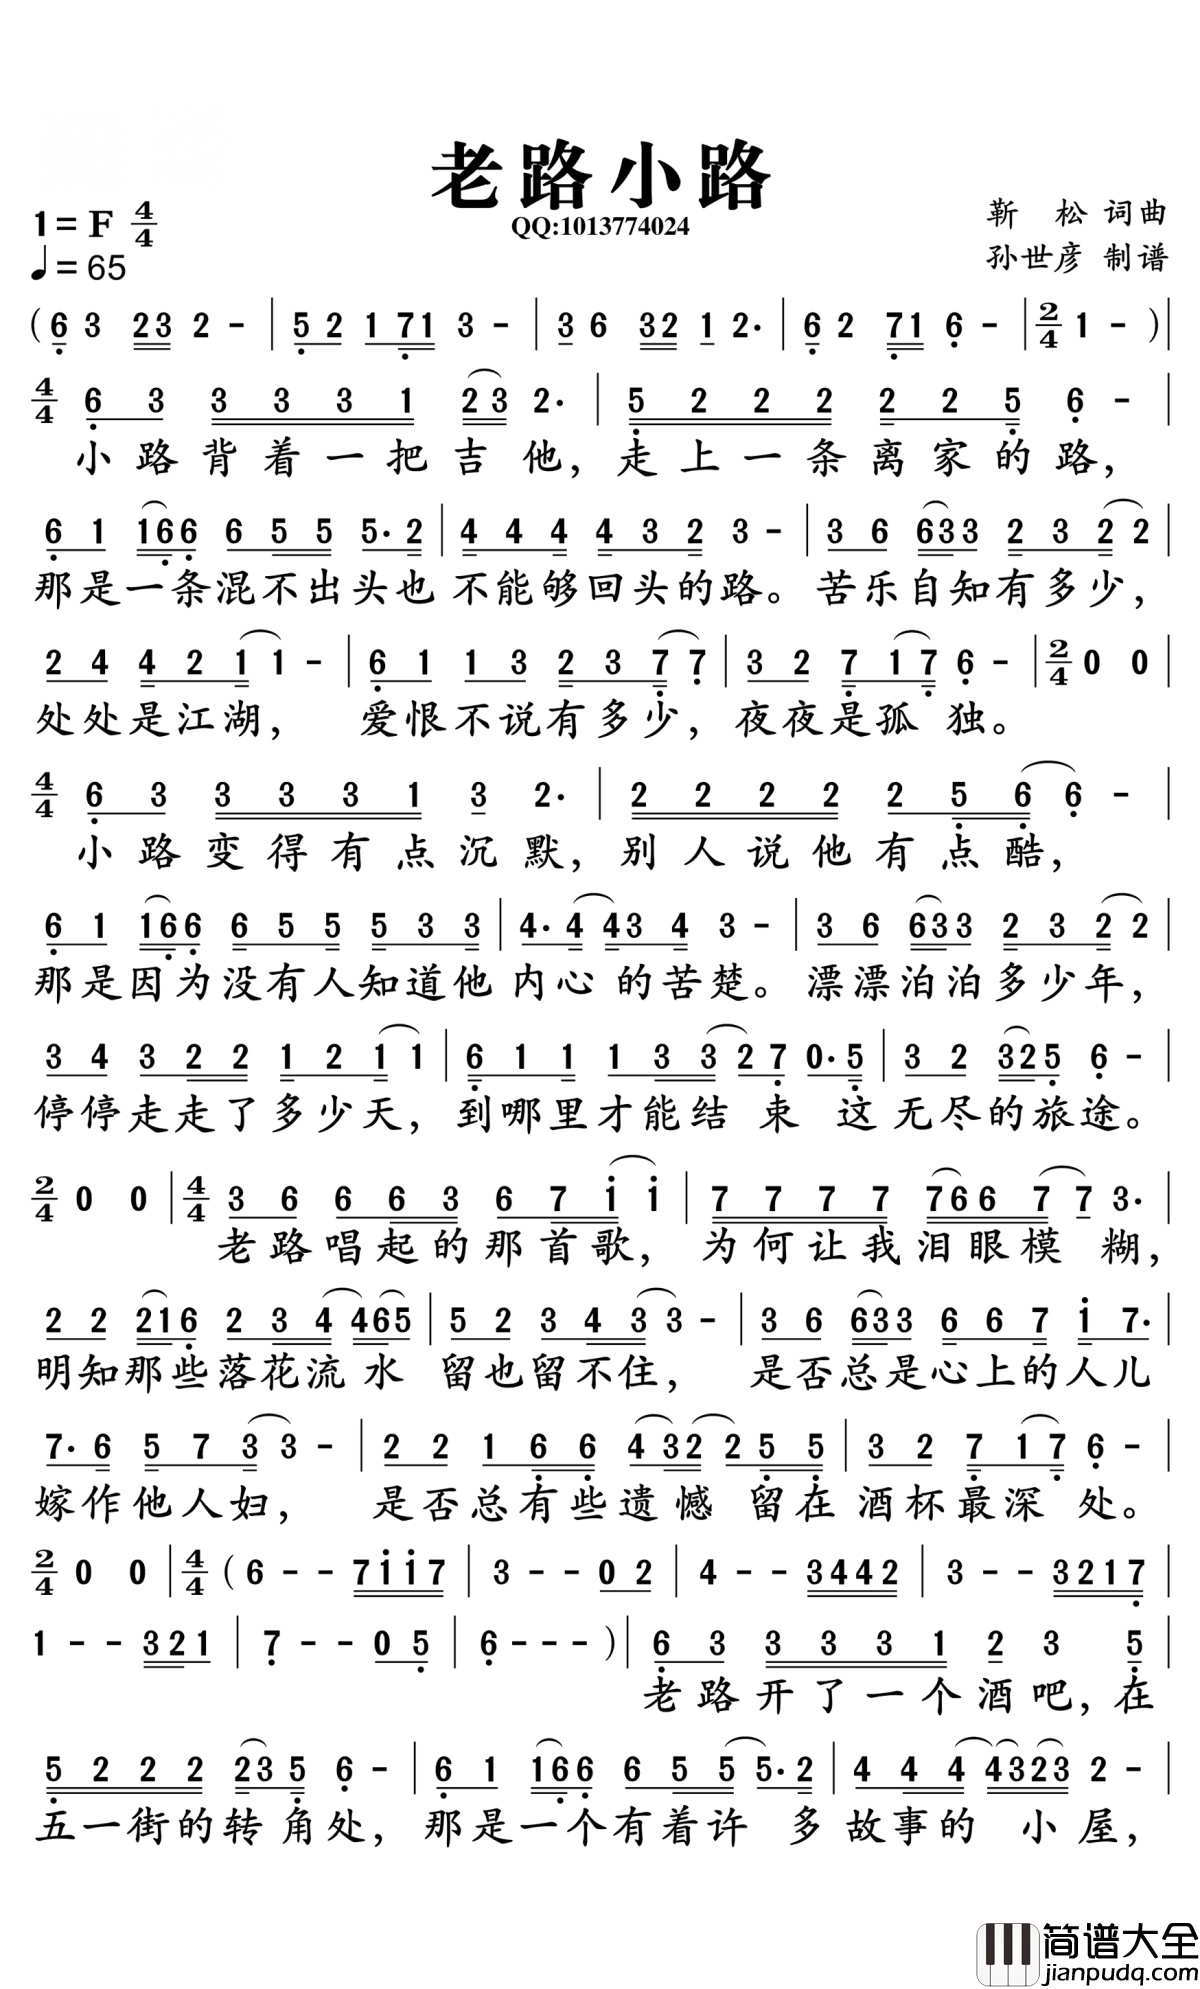 老路小路
QQ:1013774024
1=F 4/4
♩=65
靳 松 词曲
孙世彦 制谱
( 6 3 23 2 - | 5 2 1 71 3 - | 3 6 32 1 2. | 6 2 71 6 - | 2/4 1 - ) |
4/4 6 3 3 3 3 1 23 2. | 5 2 2 2 2 2 5 6 - |
小路背着一把吉他,走上一条离家的路,
6 1 166 6 5 5 5. 2 | 4 4 4 4 3 2 3 - | 3 6 633 2 3 2 2 |
那是一条混不出头也不能够回头的路。苦乐自知有多少,
2 4 4 2 1 1 - | 6 1 1 3 2 3 7 7 | 3 2 7 1 7 6 - | 2/4 0 0 |
处处是江湖, 爱恨不说有多少,夜夜是孤 独。
4/4 6 3 3 3 3 1 3 2. | 2 2 2 2 2 5 6 6 - |
小路变得有点沉默,别人说他有点酷,
6 1 166 6 5 5 5 3 3 | 4. 4 43 4 3 - | 3 6 633 2 3 2 2 |
那是因为没有人知道他 内心 的苦楚。漂漂泊泊多少年,
3 4 3 2 2 1 2 1 1 | 6 1 1 1 3 3 2 7 0. 5 | 3 2 325 6 - |
停停走走了多少天,到哪里才能结 束 这无尽的旅途。
2/4 0 0 | 4/4 3 6 6 6 3 6 7 i i | 7 7 7 7 766 7 7 3. |
老路唱起的那首歌, 为何让我泪眼模 糊,
2 2 216 2 3 4 465 | 5 2 3 4 3 3 - | 3 6 633 6 6 7 i 7. |
明知那些落花流 水 留也留不住, 是否总是心上的人儿
7. 6 5 7 3 3 - | 2 2 1 6 6 4 32 2 5 5 | 3 2 7 1 7 6 - |
嫁作他人妇, 是否总有些遗憾 留在酒杯最深 处。
2/4 0 0 | 4/4 ( 6 - - 7ii7 | 3 - - 0 2 | 4 - - 3442 | 3 - - 3217 |
1 - - 321 | 7 - - 0 5 | 6 - - - ) | 6 3 3 3 3 1 2 3 5 |
老路开了一个酒吧,在
5 2 2 2 23 5 6 - | 6 1 166 6 5 5 5. 2 | 4 4 4 4323 2 - |
五一街的转 角处,那是一个有着许 多故事的 小屋,
简谱大全
jianpudq.com